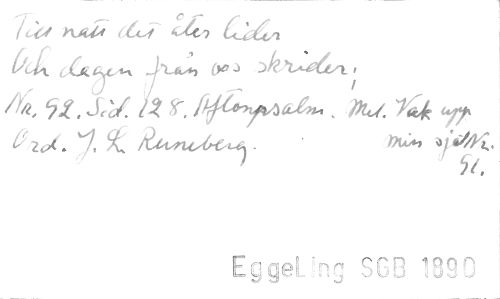 Till natt det åter lider
Och dagen från oss skrider;
Nr. 92. Sid. 128. Aftonpsalm. Mel. Vak upp
Ord. J. L. Runeberg. min själ Nr.
91.
EggeLing SGB 1890